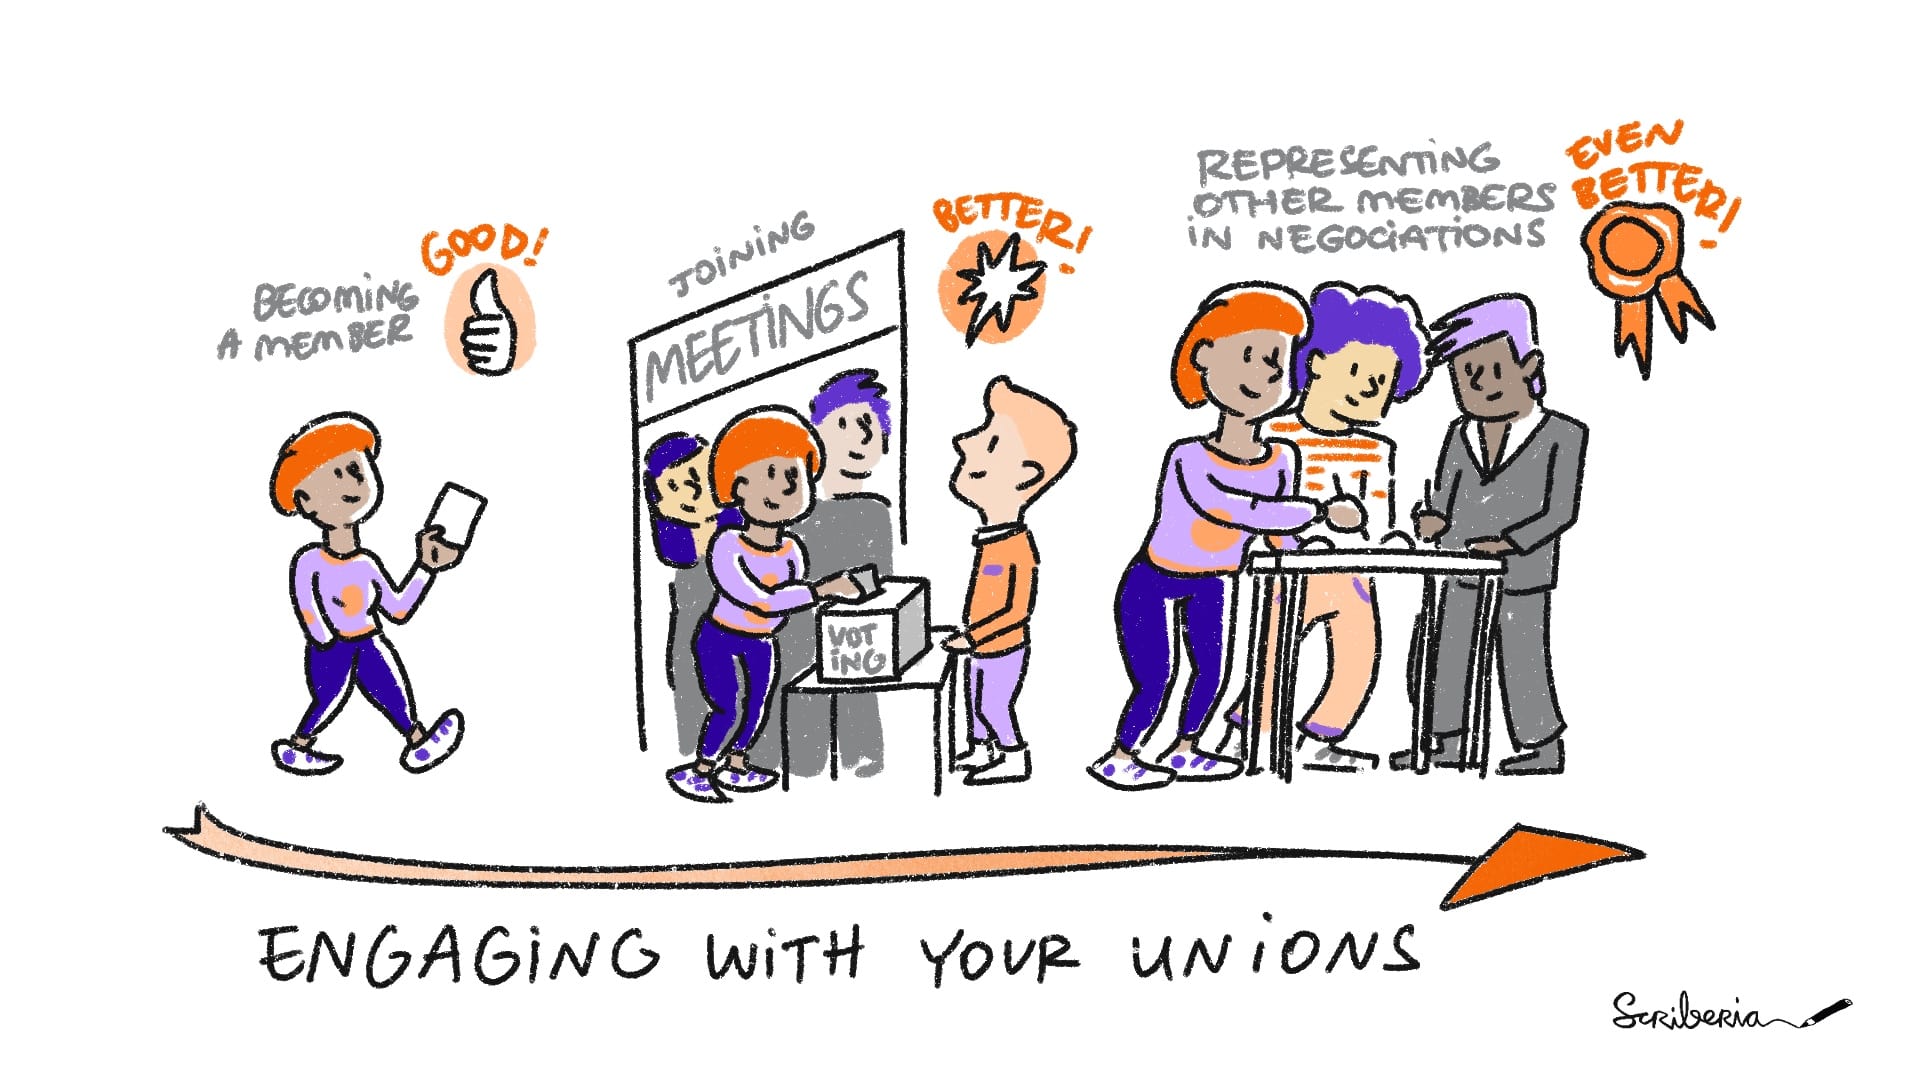 BECOMING
A MEMBER
GOOD!
JOINING
MEETINGS
BETTER!
VOT
ING
REPRESENTING
OTHER MEMBERS
IN NEGOCIATIONS
EVEN
BETTER!
ENGAGING WITH YOUR UNIONS
Scriberia